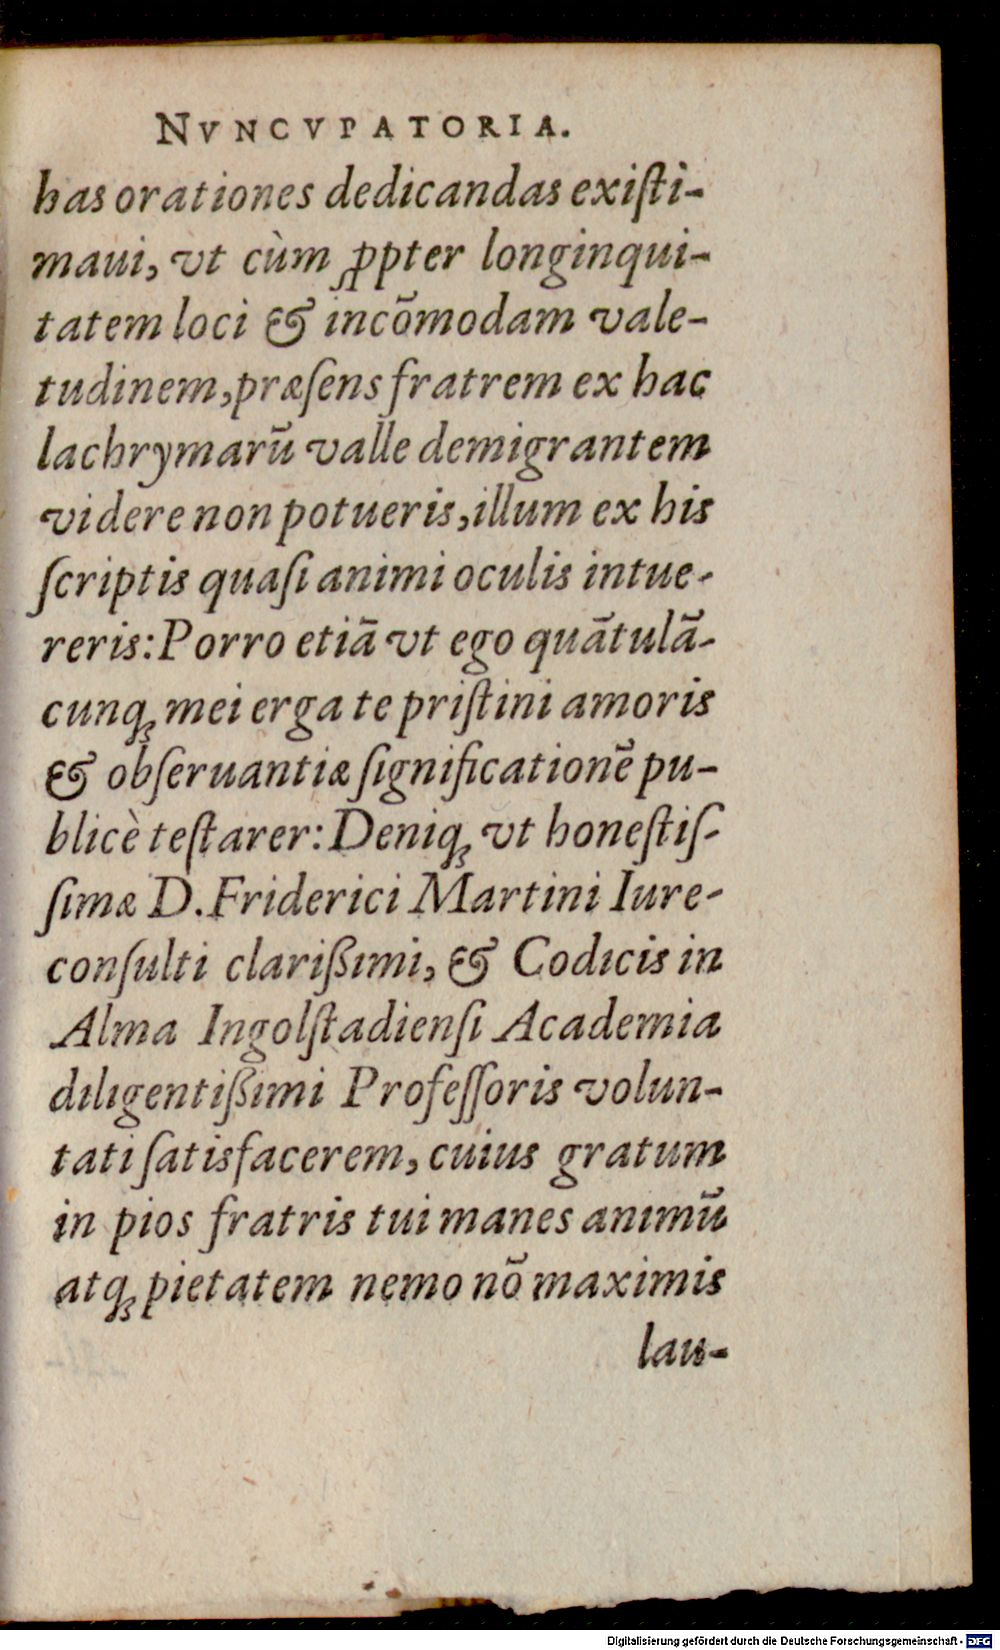 NVNCVPATORIA.
has orationes dedicandas exiſti-
maui, vt cùm ꝓpter longinqui-
tatem loci & incõmodam vale-
tudinem, præſens fratrem ex hac
lachrymarũ valle demigrantem
videre non potueris, illum ex his
ſcriptis quaſi animi oculis intue-
reris: Porro etiã vt ego quãtulã-
cunqꝫ mei erga te priſtini amoris
& obſeruantiæ ſignificationẽ pu-
blicè teſtarer: Deniqꝫ vt honeſtiſ-
ſimæ D. Friderici Martini Iure-
conſulti clarißimi, & Codicis in
Alma Ingolſtadienſi Academia
diligentißimi Profeſſoris volun-
tati ſatisfacerem, cuius gratum
in pios fratris tui manes animũ
atqꝫ pietatem nemo nõ maximis
lau-
Digitalisierung gefördert durch die Deutsche Forschungsgemeinschaft - DFG